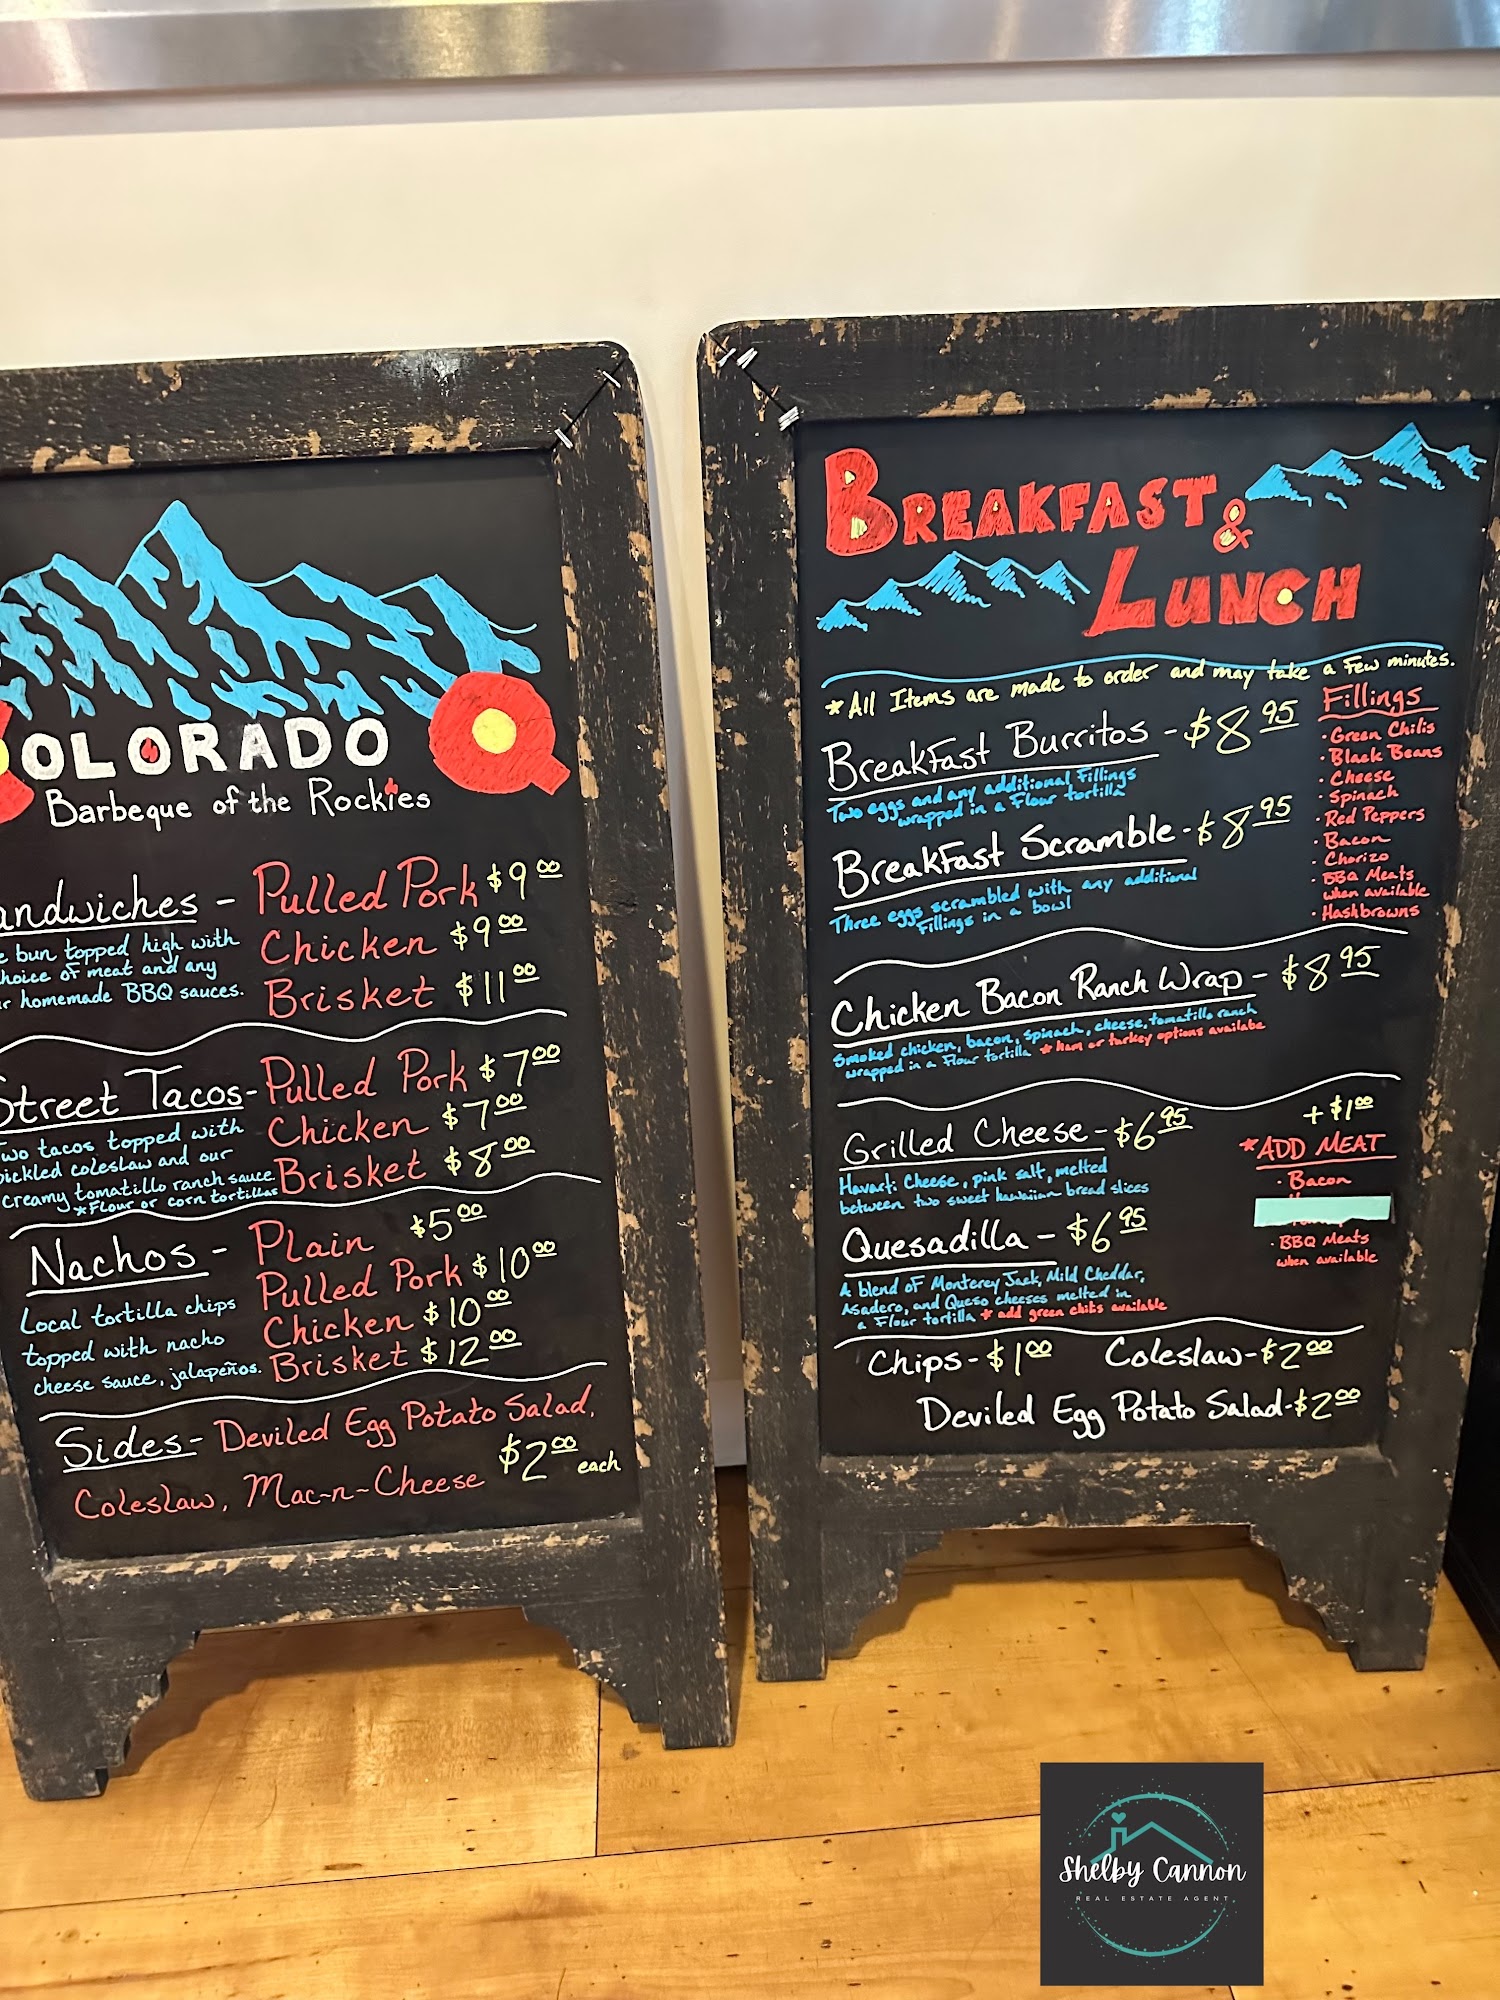 COLORADO
Barbeque of the Rockies
andwiches - Pulled Pork $9.00
Chicken $9.00
Brisket $11.00
e bun topped high with
hoice of meat and any
r homemade BBQ sauces.
Street Tacos - Pulled Pork $7.00
Chicken $7.00
Brisket $8.00
Two tacos topped with
pickled coleslaw and our
creamy tomatillo ranch sauce
*Flour or corn tortillas
Nachos - Plain $5.00
Pulled Pork $10.00
Chicken $10.00
Brisket $12.00
Local tortilla chips
topped with nacho
cheese sauce, jalapeños.
Sides - Deviled Egg Potato Salad,
Coleslaw, Mac-n-Cheese $2.00 each
BREAKFAST &
LUNCH
*All Items are made to order and may take a few minutes.
Breakfast Burritos - $8.95
Two eggs and any additional fillings
wrapped in a flour tortilla
Breakfast Scramble - $8.95
Three eggs scrambled with any additional
fillings in a bowl
Fillings
· Green Chilis
· Black Beans
· Cheese
· Spinach
· Red Peppers
· Bacon
· Chorizo
· BBQ Meats
when available
· Hashbrowns
Chicken Bacon Ranch Wrap - $8.95
Smoked chicken, bacon, spinach, cheese, tomatillo ranch
wrapped in a flour tortilla *ham or turkey options availabe
Grilled Cheese - $6.95
Havarti Cheese, pink salt, melted
between two sweet hawaiian bread slices
Quesadilla - $6.95
A blend of Monterey Jack, Mild Cheddar,
Asadero, and Queso cheeses melted in
a flour tortilla *add green chilis available
+ $1.00
*ADD MEAT
· Bacon
· BBQ Meats
when available
Chips - $1.00 Coleslaw - $2.00
Deviled Egg Potato Salad - $2.00
Shelby Cannon
REAL ESTATE AGENT